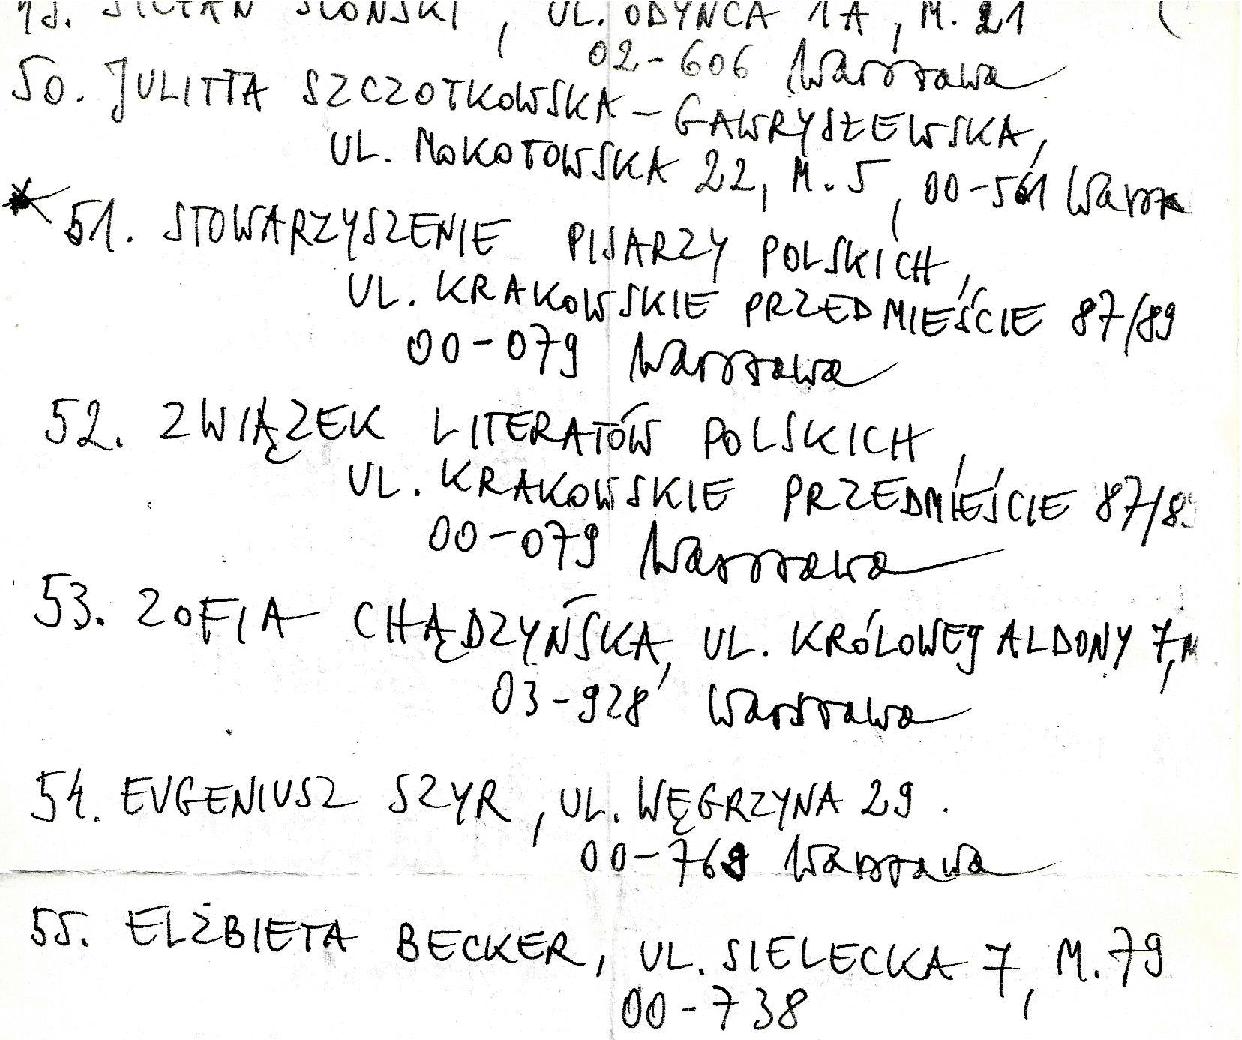 49. STEFAN SŁOŃSKI, UL. ODYŃCA 1A, M. 21
02-606 Warszawa
50. JULITTA SZCZOTKOWSKA-GAWRYSZEWSKA,
UL. MOKOTOWSKA 22, M. 5, 00-561
51. STOWARZYSZENIE PISARZY POLSKICH,
UL. KRAKOWSKIE PRZEDMIEŚCIE 87/89
00-079 Warszawa
52. ZWIĄZEK LITERATÓW POLSKICH,
UL. KRAKOWSKIE PRZEDMIEŚCIE
00-079 Warszawa
53. ZOFIA CHĄDZYŃSKA, UL. KRÓLOWEJ ALDONY 7,
03-928 Warszawa
54. EUGENIUSZ SZYR, UL. WĘGRZYNA 29.
Warszawa
55. ELŻBIETA BECKER, UL. SIELECKA 7, M. 79
00-738